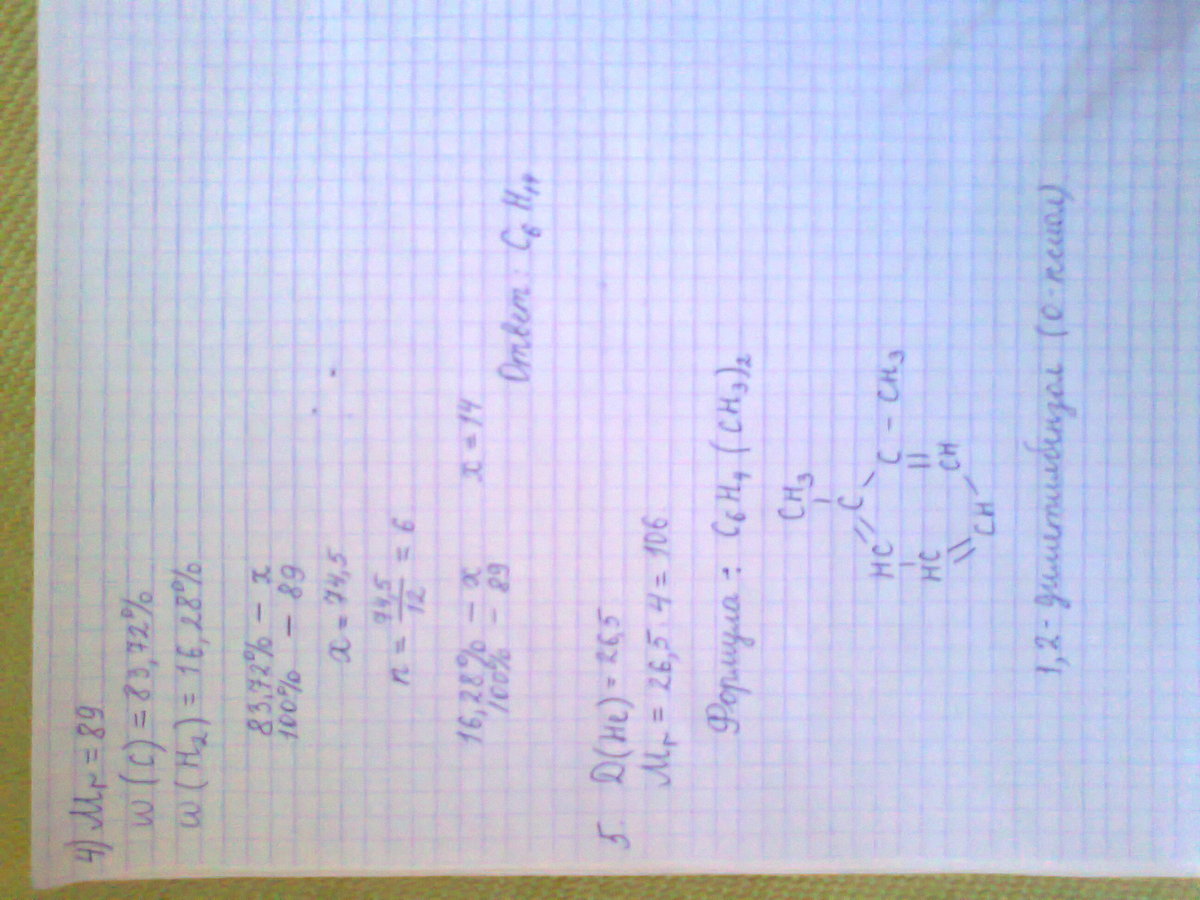 4) Mr = 89
w (C) = 83,72%
w (H₂) = 16,28%
83,72% – x
100% – 89
x = 74,5
n = 74,5/12 = 6
16,28% – x    x = 14
100% – 89
Ответ: C₆H₁₄
5. D(He) = 26,5
Mr = 26,5 · 4 = 106
Формула: C₆H₄(CH₃)₂
CH₃
C
HC C – CH₃
HC CH
CH
1,2 - диметилбензол (о-ксилол)